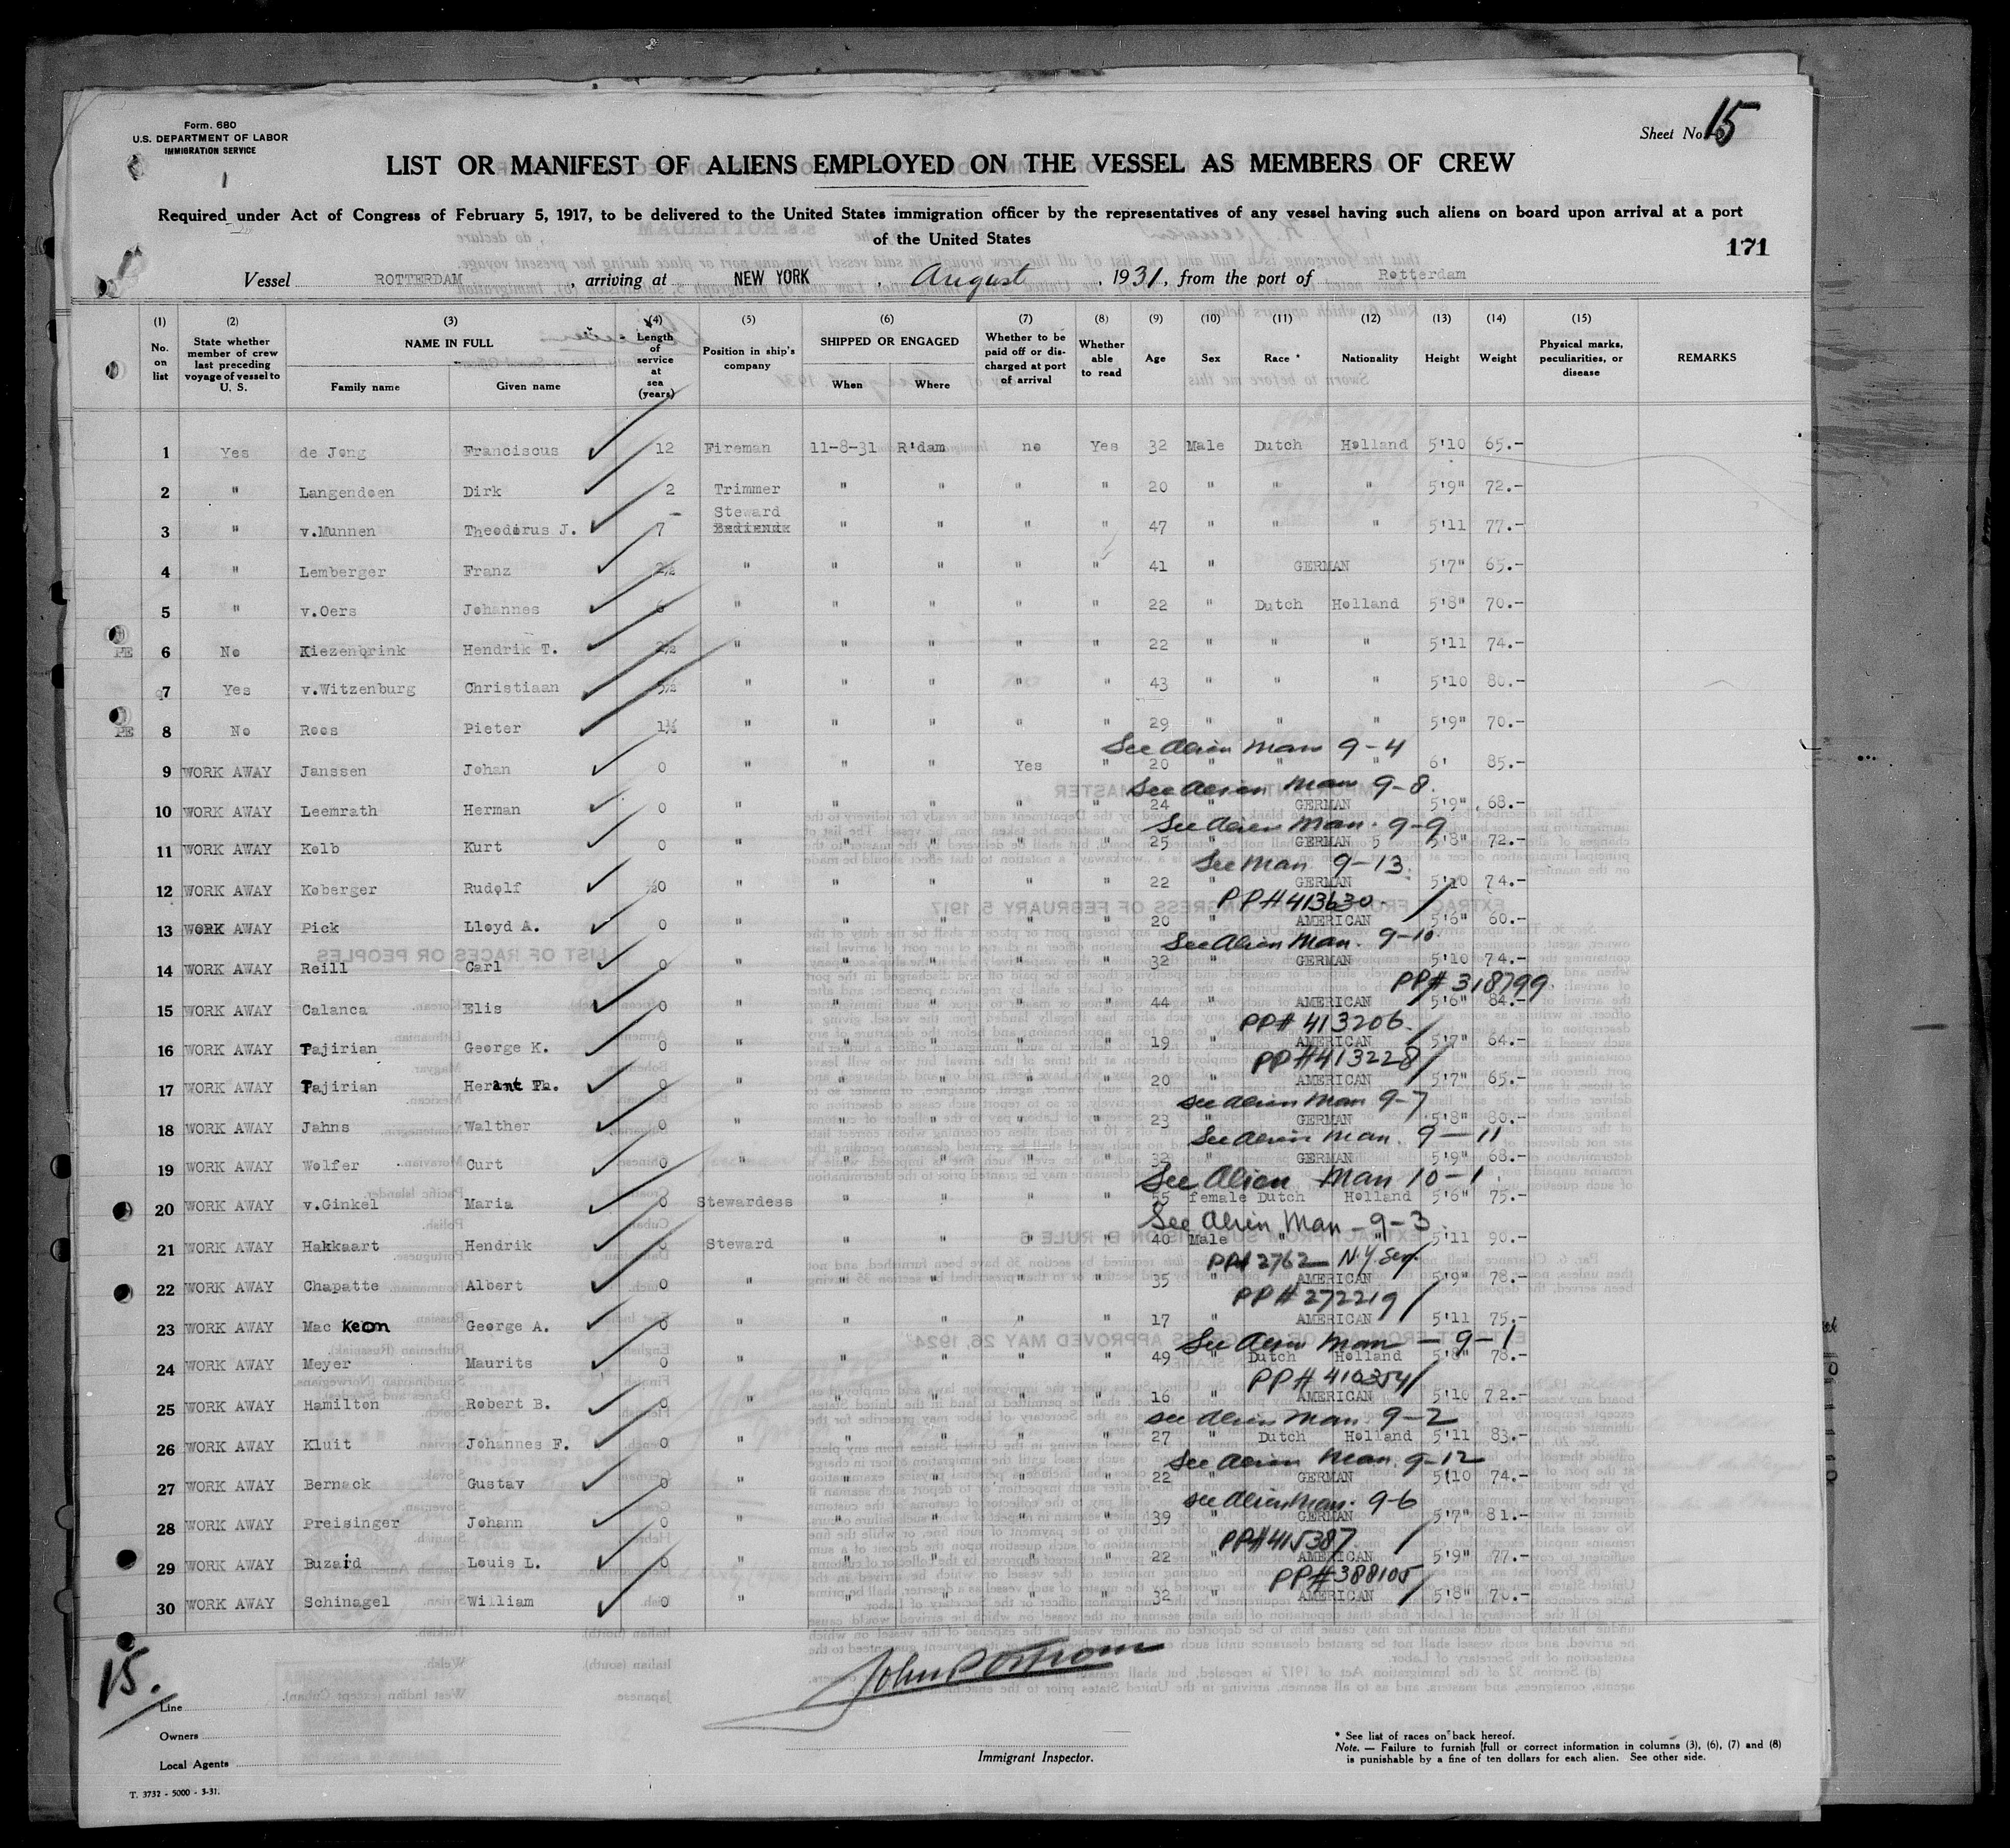 Form. 680
U.S. DEPARTMENT OF LABOR
IMMIGRATION SERVICE
Sheet No. 15
LIST OR MANIFEST OF ALIENS EMPLOYED ON THE VESSEL AS MEMBERS OF CREW
Required under Act of Congress of February 5, 1917, to be delivered to the United States immigration officer by the representatives of any vessel having such aliens on board upon arrival at a port
of the United States
171
Vessel ROTTERDAM , arriving at NEW YORK , August , 1931, from the port of Rotterdam
(1) (2) (3) (4) (5) (6) (7) (8) (9) (10) (11) (12) (13) (14) (15)
No. on list State whether member of crew last preceding voyage of vessel to U. S. NAME IN FULL Family name Given name Length of service at sea (years) Position in ship's company SHIPPED OR ENGAGED When Where Whether to be paid off or discharged at port of arrival Whether able to read Age Sex Race * Nationality Height Weight Physical marks, peculiarities, or disease REMARKS
1 Yes de Jong Franciscus 12 Fireman 11-8-31 R'dam no Yes 32 Male Dutch Holland 5'10 65.-
2 " Langendoen Dirk 2 Trimmer " " " " 20 " " " 5'9" 72.-
Steward
3 " v.Munnen Theodorus J. 7 Bediende " " " " 47 " " " 5'11 77.-
4 " Lemberger Franz 2½ " " " " " 41 " GERMAN 5'7" 65.-
5 " v.Oers Johannes 6 " " " " " 22 " Dutch Holland 5'8" 70.-
PE 6 No Kiezenbrink Hendrik T. 2½ " " " " " 22 " " " 5'11 74.-
7 Yes v.Witzenburg Christiaan 5½ " " " " " 43 " " " 5'10 80.-
PE 8 No Roos Pieter 1½ " " " " " 29 " " " 5'9" 70.-
See Alien Man 9-4
9 WORK AWAY Janssen Johan 0 " " " Yes " 20 " " " 6' 85.-
See Alien Man 9-8.
10 WORK AWAY Leemrath Herman 0 " " " " " 24 " GERMAN 5'9" 68.-
See Alien Man. 9-9
11 WORK AWAY Kolb Kurt 0 " " " " " 25 " GERMAN 5 5'8" 72.-
See Man 9-13.
12 WORK AWAY Koberger Rudolf ½0 " " " " " 22 " GERMAN 5'10 74.-
PP# 413630.
13 WORK AWAY Pick Lloyd A. 0 " " " " " 20 " AMERICAN 5'6" 60.-
See Alien Man. 9-10
14 WORK AWAY Reill Carl 0 " " " " " 32 " GERMAN 5'10 74.-
PP# 318799.
15 WORK AWAY Calanca Elis 0 " " " " " 44 " AMERICAN 5'6" 84.-
PP# 413206.
16 WORK AWAY Tajirian George K. 0 " " " " " 19 " AMERICAN 5'7" 64.-
PP# 413228
17 WORK AWAY Tajirian Herant Th. 0 " " " " " 20 " AMERICAN 5'7" 65.-
See Alien Man 9-7
18 WORK AWAY Jahns Walther 0 " " " " " 23 " GERMAN 5'8" 80.-
See Alien Man. 9-11
19 WORK AWAY Wolfer Curt 0 " " " " " 32 " GERMAN 5'9" 68.-
See Alien Man 10-1
20 WORK AWAY v.Ginkel Maria 0 Stewardess " " " " 55 female Dutch Holland 5'6" 75.-
See Alien Man - 9-3
21 WORK AWAY Hakkaart Hendrik 0 Steward " " " " 40 Male " " 5'11 90.-
PP# 2762 - N.Y. Ser.
22 WORK AWAY Chapatte Albert 0 " " " " " 35 " AMERICAN 5'9" 78.-
PP# 272219
23 WORK AWAY Mac Keon George A. 0 " " " " " 17 " AMERICAN 5'11 75.-
See Alien Man - 9-1
24 WORK AWAY Meyer Maurits 0 " " " " " 49 " Dutch Holland 5'8" 78.-
PP# 410354
25 WORK AWAY Hamilton Robert B. 0 " " " " " 16 " AMERICAN 5'10 72.-
See Alien Man. 9-2
26 WORK AWAY Kluit Johannes F. 0 " " " " " 27 " Dutch Holland 5'11 83.-
See Alien Man. 9-12
27 WORK AWAY Bernack Gustav 0 " " " " " 22 " GERMAN 5'10 74.-
See Alien Man. 9-6
28 WORK AWAY Preisinger Johann 0 " " " " " 39 " GERMAN 5'7" 81.-
PP# 415387.
29 WORK AWAY Buzaid Louis L. 0 " " " " " 22 " AMERICAN 5'9" 77.-
PP# 388105
30 WORK AWAY Schinagel William 0 " " " " " 32 " AMERICAN 5'8" 70.-
15.
Line
Owners
Local Agents
Immigrant Inspector.
* See list of races on back hereof.
Note. — Failure to furnish full or correct information in columns (3), (6), (7) and (8)
is punishable by a fine of ten dollars for each alien. See other side.
T. 3732 - 5000 - 3-31.